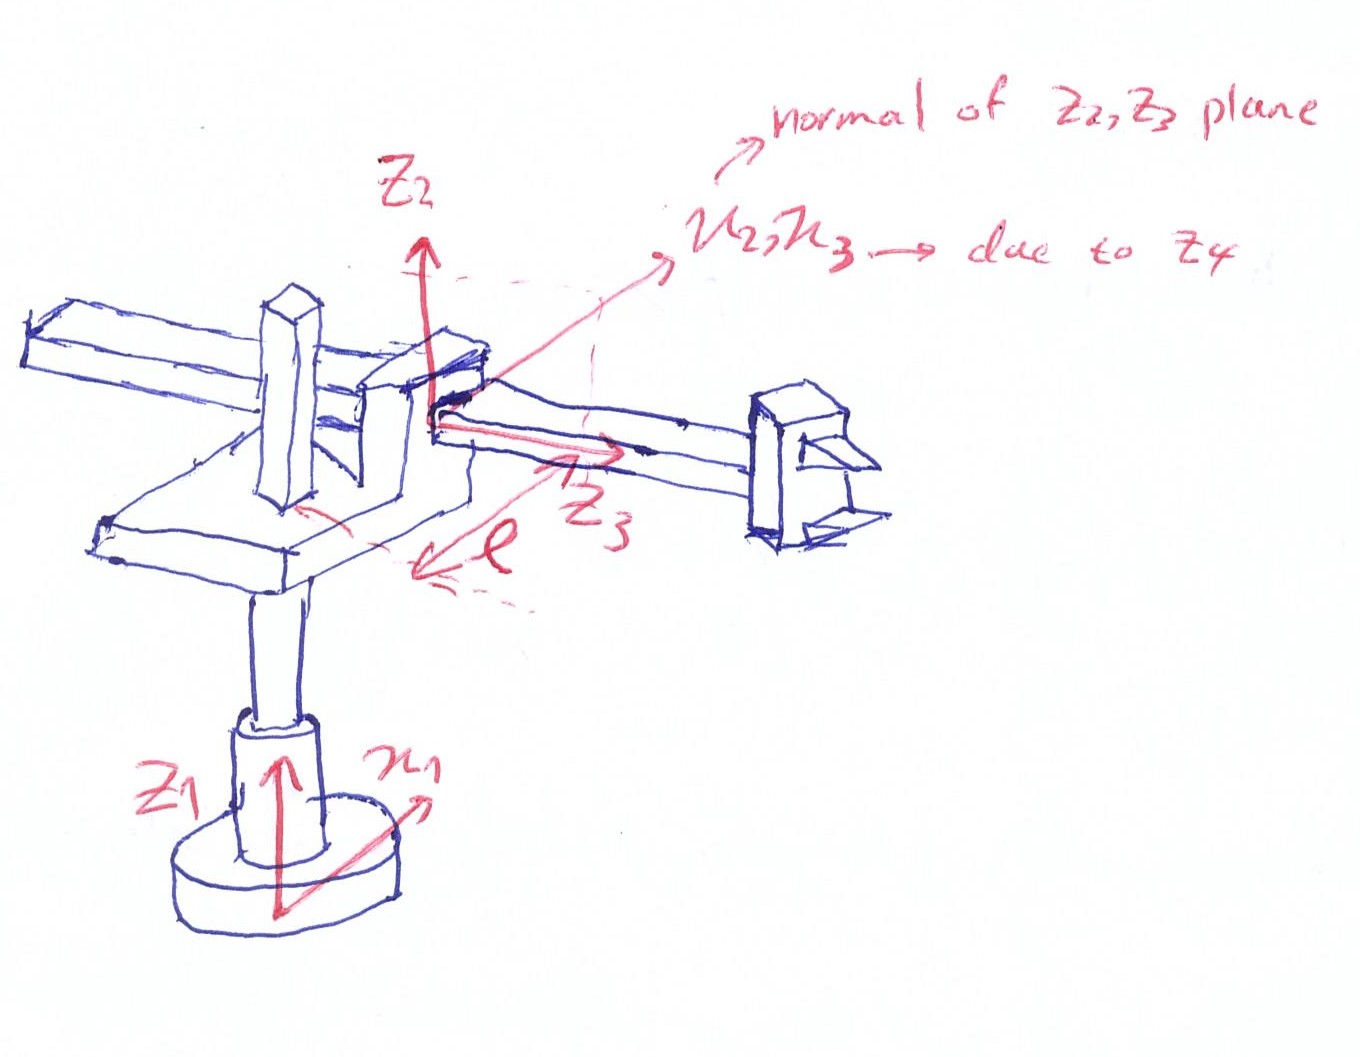 normal of Z2, Z3 plane
Z2
x2, x3 → due to Z4
Z3
l
Z1
x1